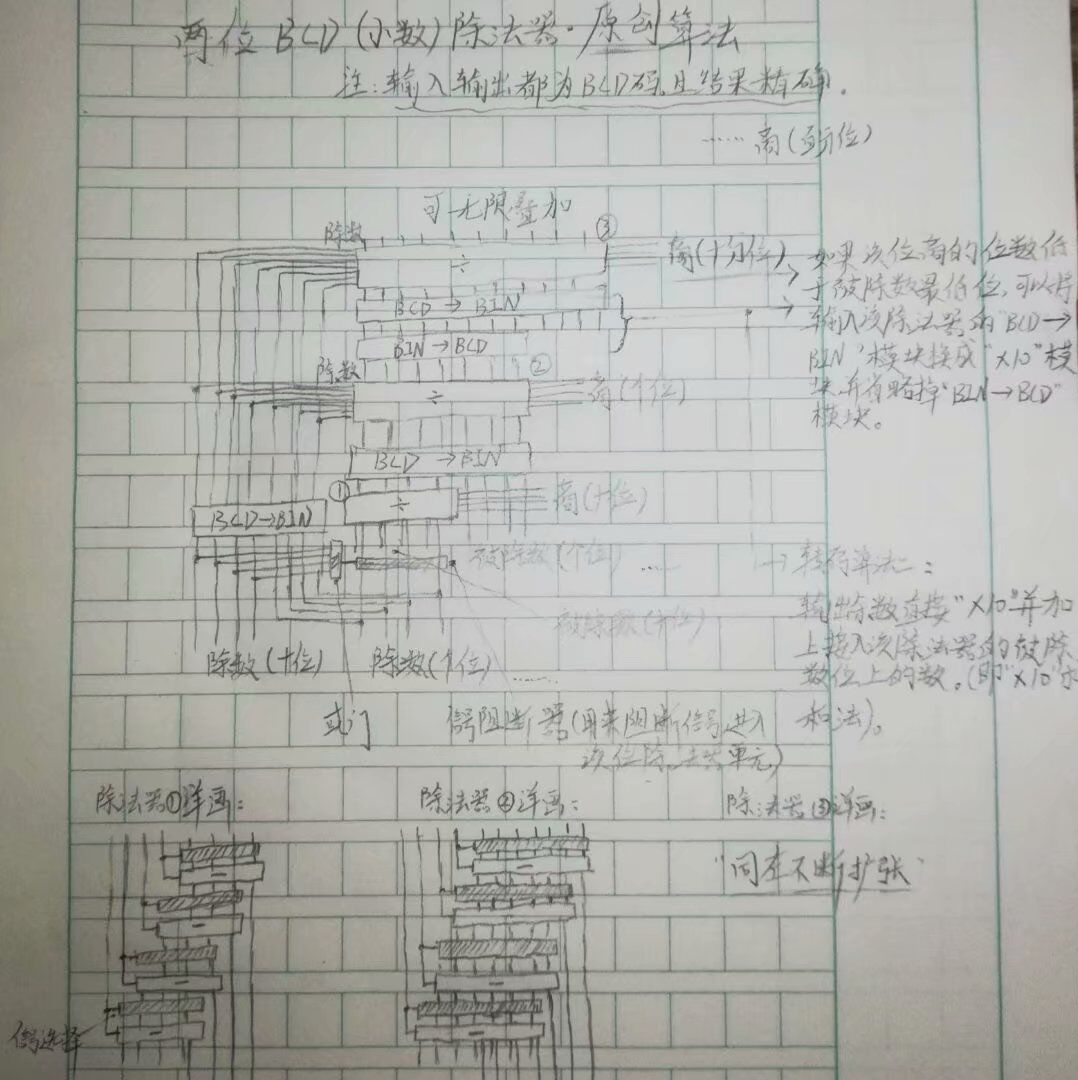 两位BCD(小数)除法器·原创算法
注:输入输出都为BCD码,且结果精确.
……商(百分位)
可无限叠加
除数
③
÷
商(十分位)
BCD→BIN
BIN→BCD
除数
②
÷
商(个位)
BCD→BIN
①
÷
商(十位)
BCD→BIN
被除数(个位)……
被除数(十位)
除数(十位)
除数(个位)……
或门
信号阻断器(用来阻断信号进入
次位除法器单元)
→如果次位商的位数低
→于被除数最低位,可以将
输入该除法器的"BCD→
BIN"模块换成"×10"模
块并省略掉"BIN→BCD"
模块。
→转码算法二:
输出余数直接"×10"并加
上接入该除法器的被除
数位上的数。(即"×10"
和法)。
除法器①详画:
除法器②详画:
除法器③详画:
"同在不断扩张"
信号选择